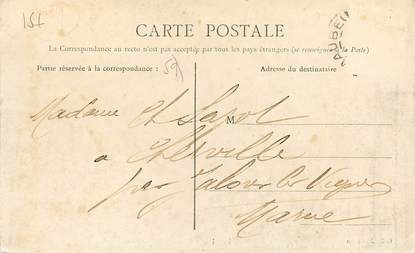 156
CARTE POSTALE
AUBE
La Correspondance au recto n'est pas acceptée par tous les pays étrangers (se renseigner à la Poste)
Partie réservée à la correspondance :
59
Adresse du destinataire
Madame Ch
M
a Cherville
par Jalons les Vignes
Marne